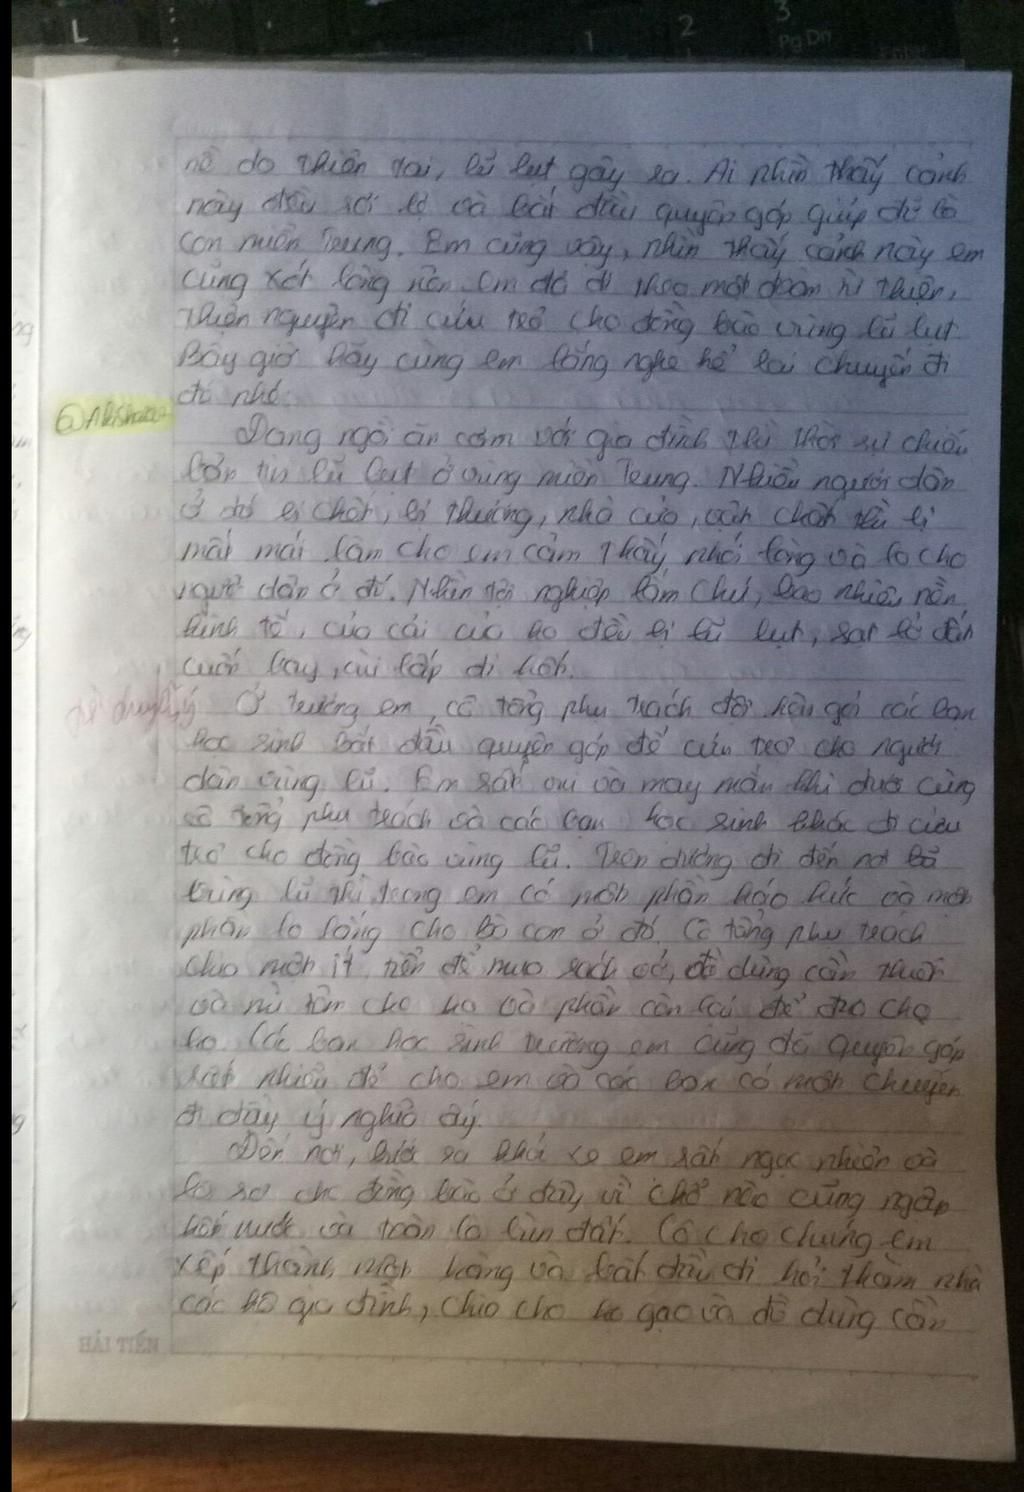 L
1
2
3
Pg Dn
Enter
nề do thiên tai, lũ lụt gây ra. Ai nhìn thấy cảnh
này đều và bắt đầu quyên góp giúp đỡ bà
con miền Trung. Em cũng vậy, nhìn thấy cảnh này em
cũng xót lòng nên em đã đi theo một đoàn từ thiện,
thiện nguyện đi cứu trợ cho đồng bào vùng lũ lụt
Bây giờ hãy cùng em lắng nghe kể lại chuyến đi
đó nhé.
Đang ngồi ăn cơm với gia đình thì thời sự chiếu
bản tin lũ lụt ở vùng miền Trung. Nhiều người dân
ở đó bị chết, bị thương, nhà cửa, vật chất thì bị
mất mát làm cho em cảm thấy nhói lòng và lo cho
người dân ở đó. Nhìn tội nghiệp lắm chứ, bao nhiêu nền
kinh tế, của cải của họ đều bị lũ lụt, sạt lở đất
cuốn bay, vùi lấp đi hết.
Ở trường em, cô tổng phụ trách đội kêu gọi các bạn
học sinh bắt đầu quyên góp để cứu trợ cho người
dân vùng lũ. Em rất vui và may mắn khi được cùng
cô tổng phụ trách và các bạn học sinh khác đi cứu
trợ cho đồng bào vùng lũ. Trên đường đi đến nơi bà
trùng lũ thì trong em có một phần háo hức và một
phần lo lắng cho bà con ở đó. Cô tổng phụ trách
một ít tiền để mua sách vở, đồ dùng cần thiết
và cho họ và phần còn lại để đưa cho
họ. Các bạn học sinh trường em cũng đã quyên góp
rất nhiều để cho em và các bạn có một chuyến
đi đầy ý nghĩa ấy.
Đến nơi, bước ra khỏi xe em rất ngạc nhiên và
lo sợ cho đồng bào ở đây vì chỗ nào cũng ngập
hết nước và toàn là bùn đất. Cô cho chúng em
xếp thành một hàng và bắt đầu đi hỏi thăm nhà
các hộ gia đình, chia cho họ gạo và đồ dùng cần
HẢI TIẾN